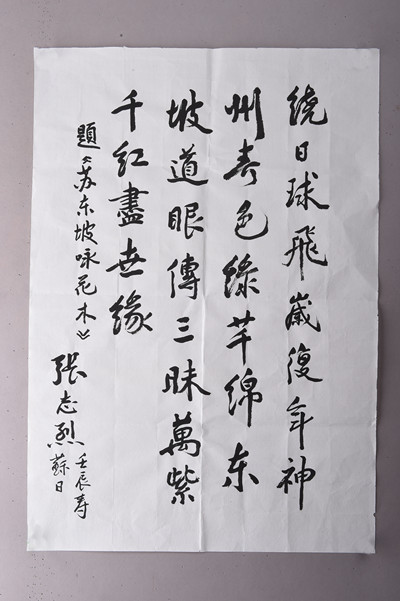 繞日球飛歲復年神
州春色綠芊綿东
坡道眼傳三昧萬紫
千红盡世缘
題《苏东坡咏花木》
张志烈
壬辰寿
蘇日